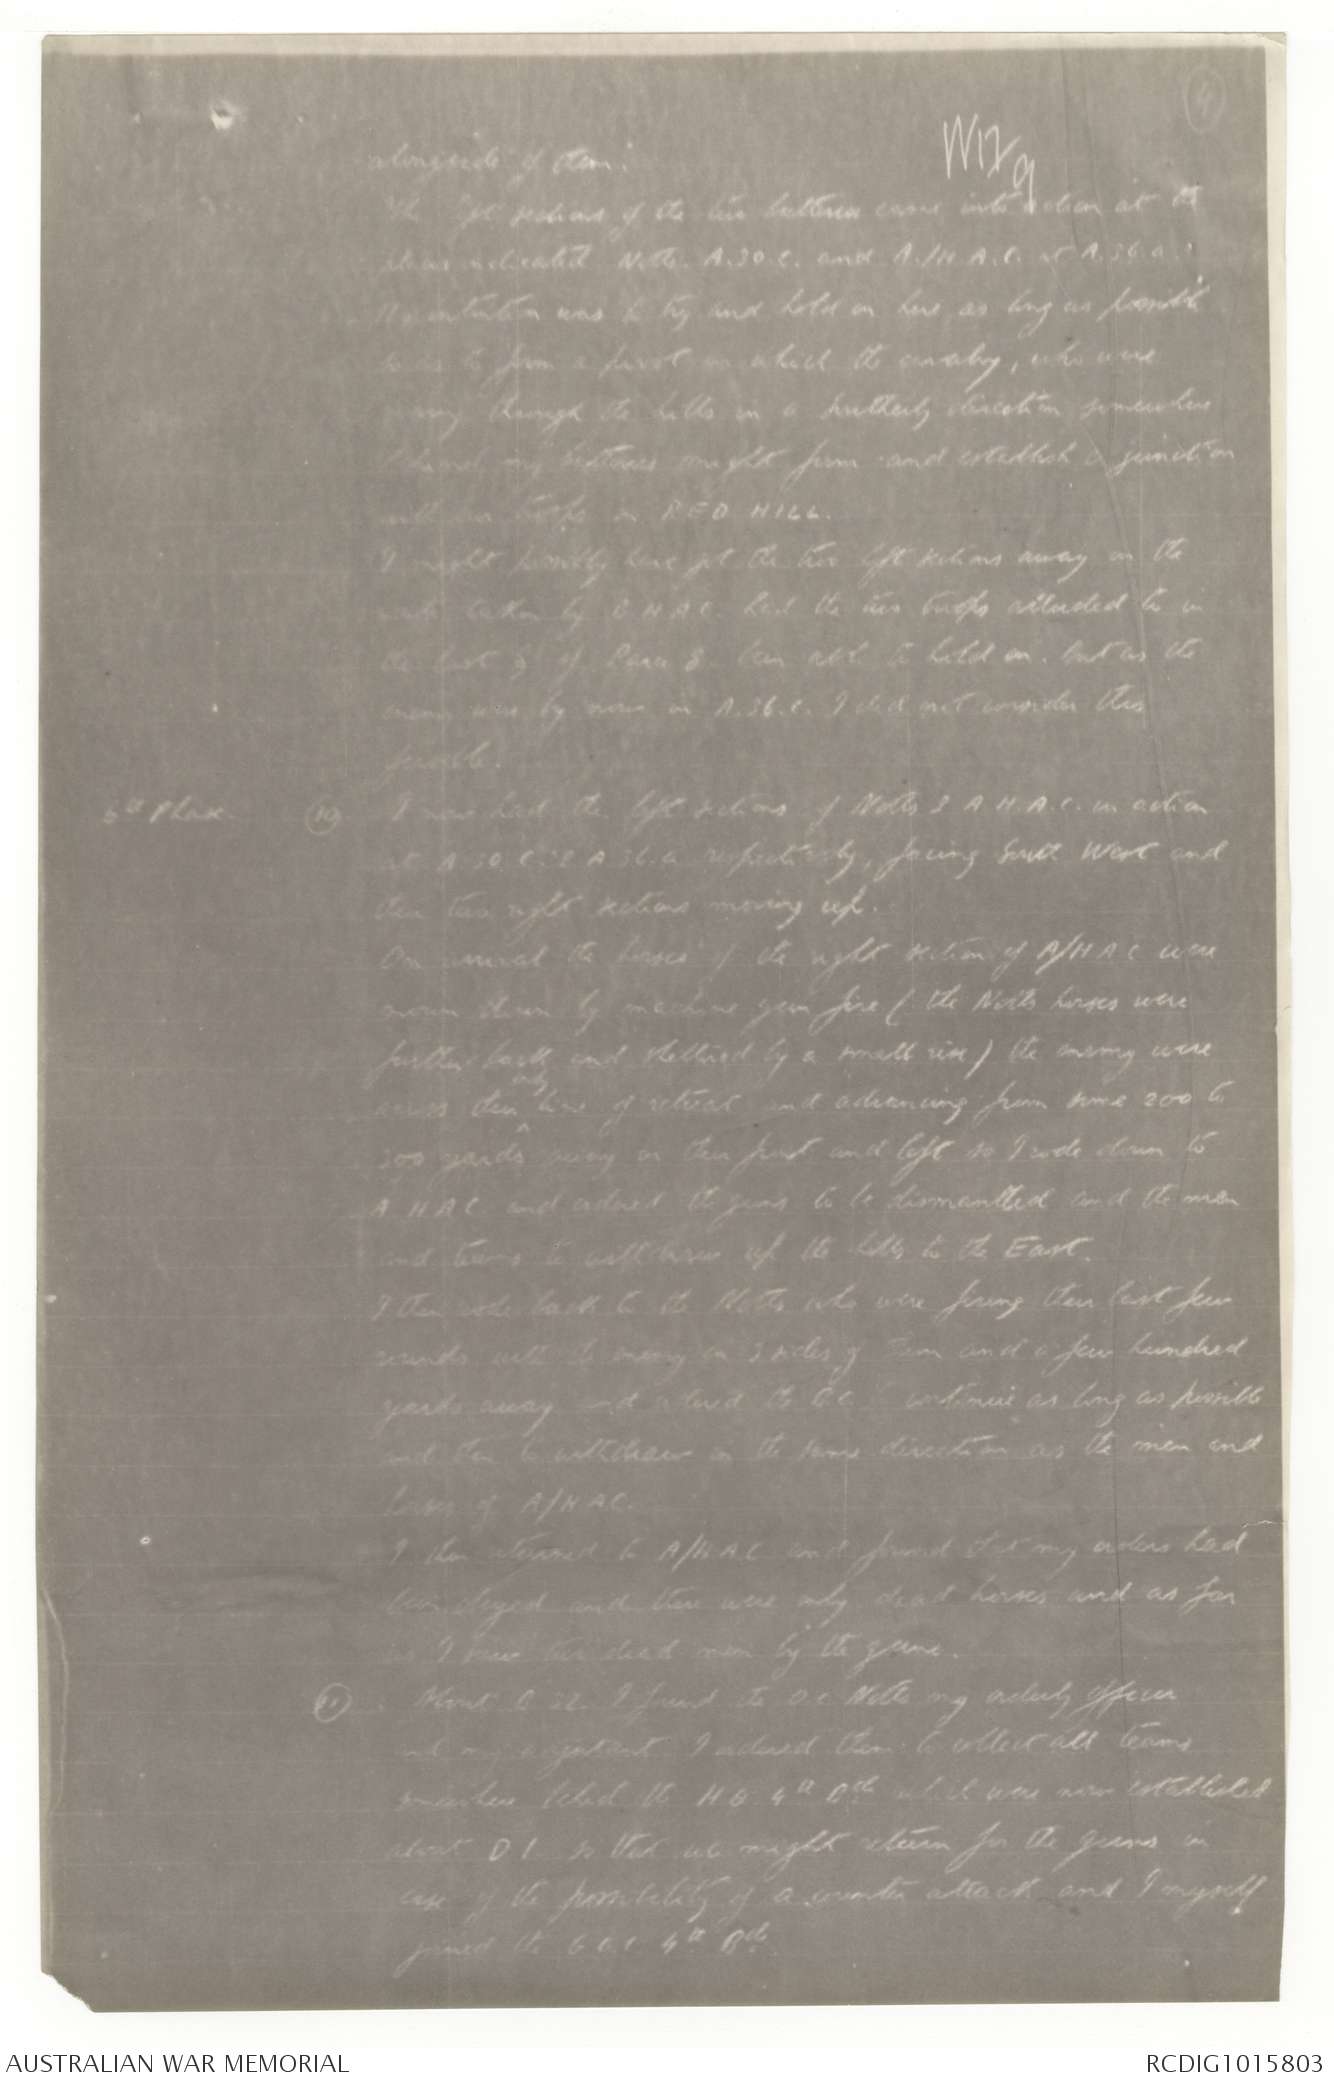 4
W12/9
alongside of them.
The left sections of the two batteries came into action at the
places indicated Notts. A.30.C. and A./H.A.C. at A.36.a.
My intention was to try and hold on here as long as possible
so as to form a pivot on which the cavalry, who were
moving through the hills in a southerly direction somewhere
behind my batteries might form and establish a junction
with our troops on RED HILL.
I might possibly have got the two left sections away on the
route taken by B.H.A.C. had the two troops alluded to in
the last § of Para 8 been able to hold on. but as the
enemy were by now in A.36.c. I did not consider this
possible.
6th Phase. (10) I now had the left sections of Notts & A.H.A.C. in action
at A.30.C. & A.36.a respectively, facing South West and
their two right sections moving up.
On arrival the horses of the right section of A/HAC were
mown down by machine gun fire (the Notts horses were
further back and sheltered by a small rise) the enemy were
across their only line of retreat and advancing from some 200 to
300 yards away on their front and left so I rode down to
A.HAC. and ordered the guns to be dismantled and the men
and teams to withdraw up the hills to the East.
I then rode back to the Notts who were firing their last few
rounds with the enemy on 3 sides of them and a few hundred
yards away and ordered the O.C. continue as long as possible
and then to withdraw in the same direction as the men and
horses of A/HAC.
I then returned to A/H.A.C. and found that my orders had
been obeyed and there were only dead horses and as far
as I saw two dead men by the guns.
(11) About C.22. I found the O.C. Notts my orderly officer
and my adjutant. I ordered them to collect all teams
somewhere behind the H.Q. 4th Bde which were now established
about D1 so that we might return for the guns in
case of the possibility of a counter attack and I myself
joined the G.O.C. 4th Bde.
AUSTRALIAN WAR MEMORIAL
RCDIG1015803